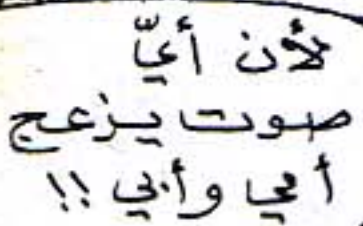 لأن أيّ
صوت يزعج
أمي وأبي !!